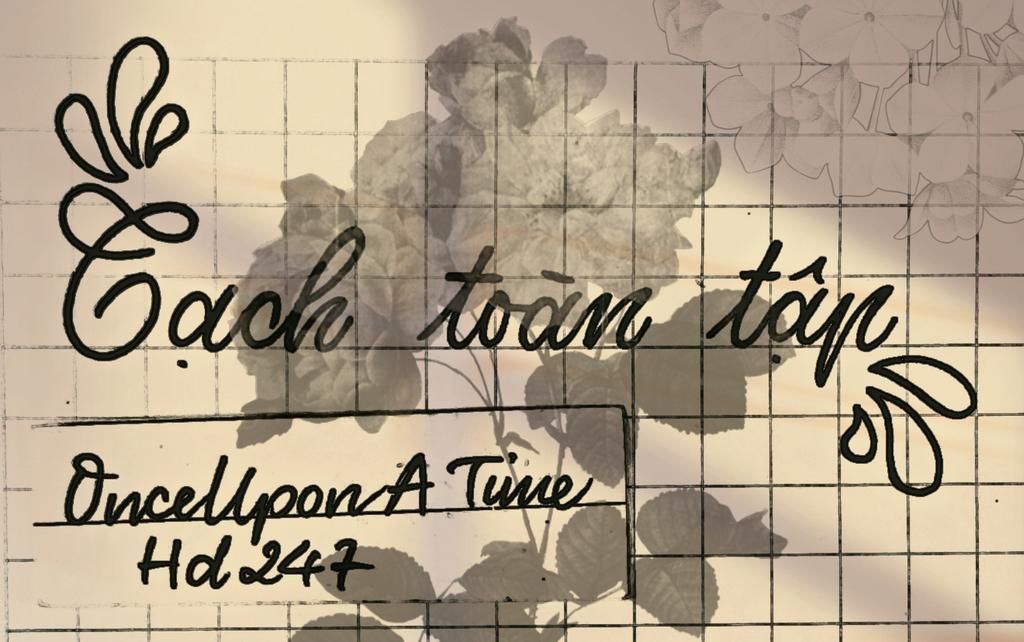 Tạch toàn tập
OnceUpon A Time
Hd 247